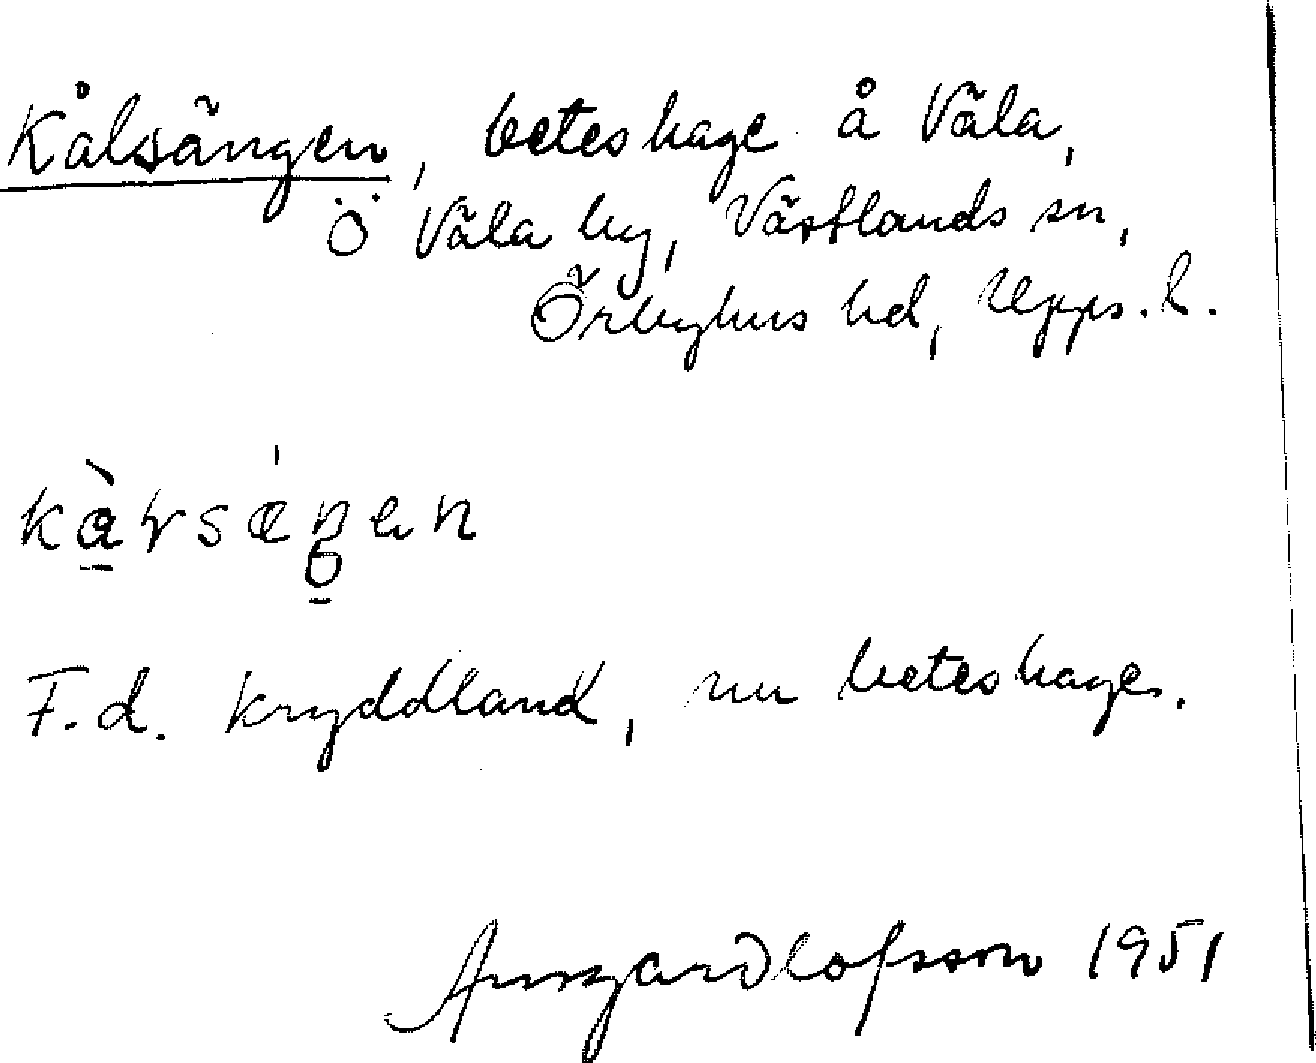 Kålsängen, beteshage å Väla,
Ö Väla by, Västlands sn,
Örbyhus hd, Upps. l.
kàrsǽŋen
F.d. kryddland, nu beteshage.
Olofsson 1951